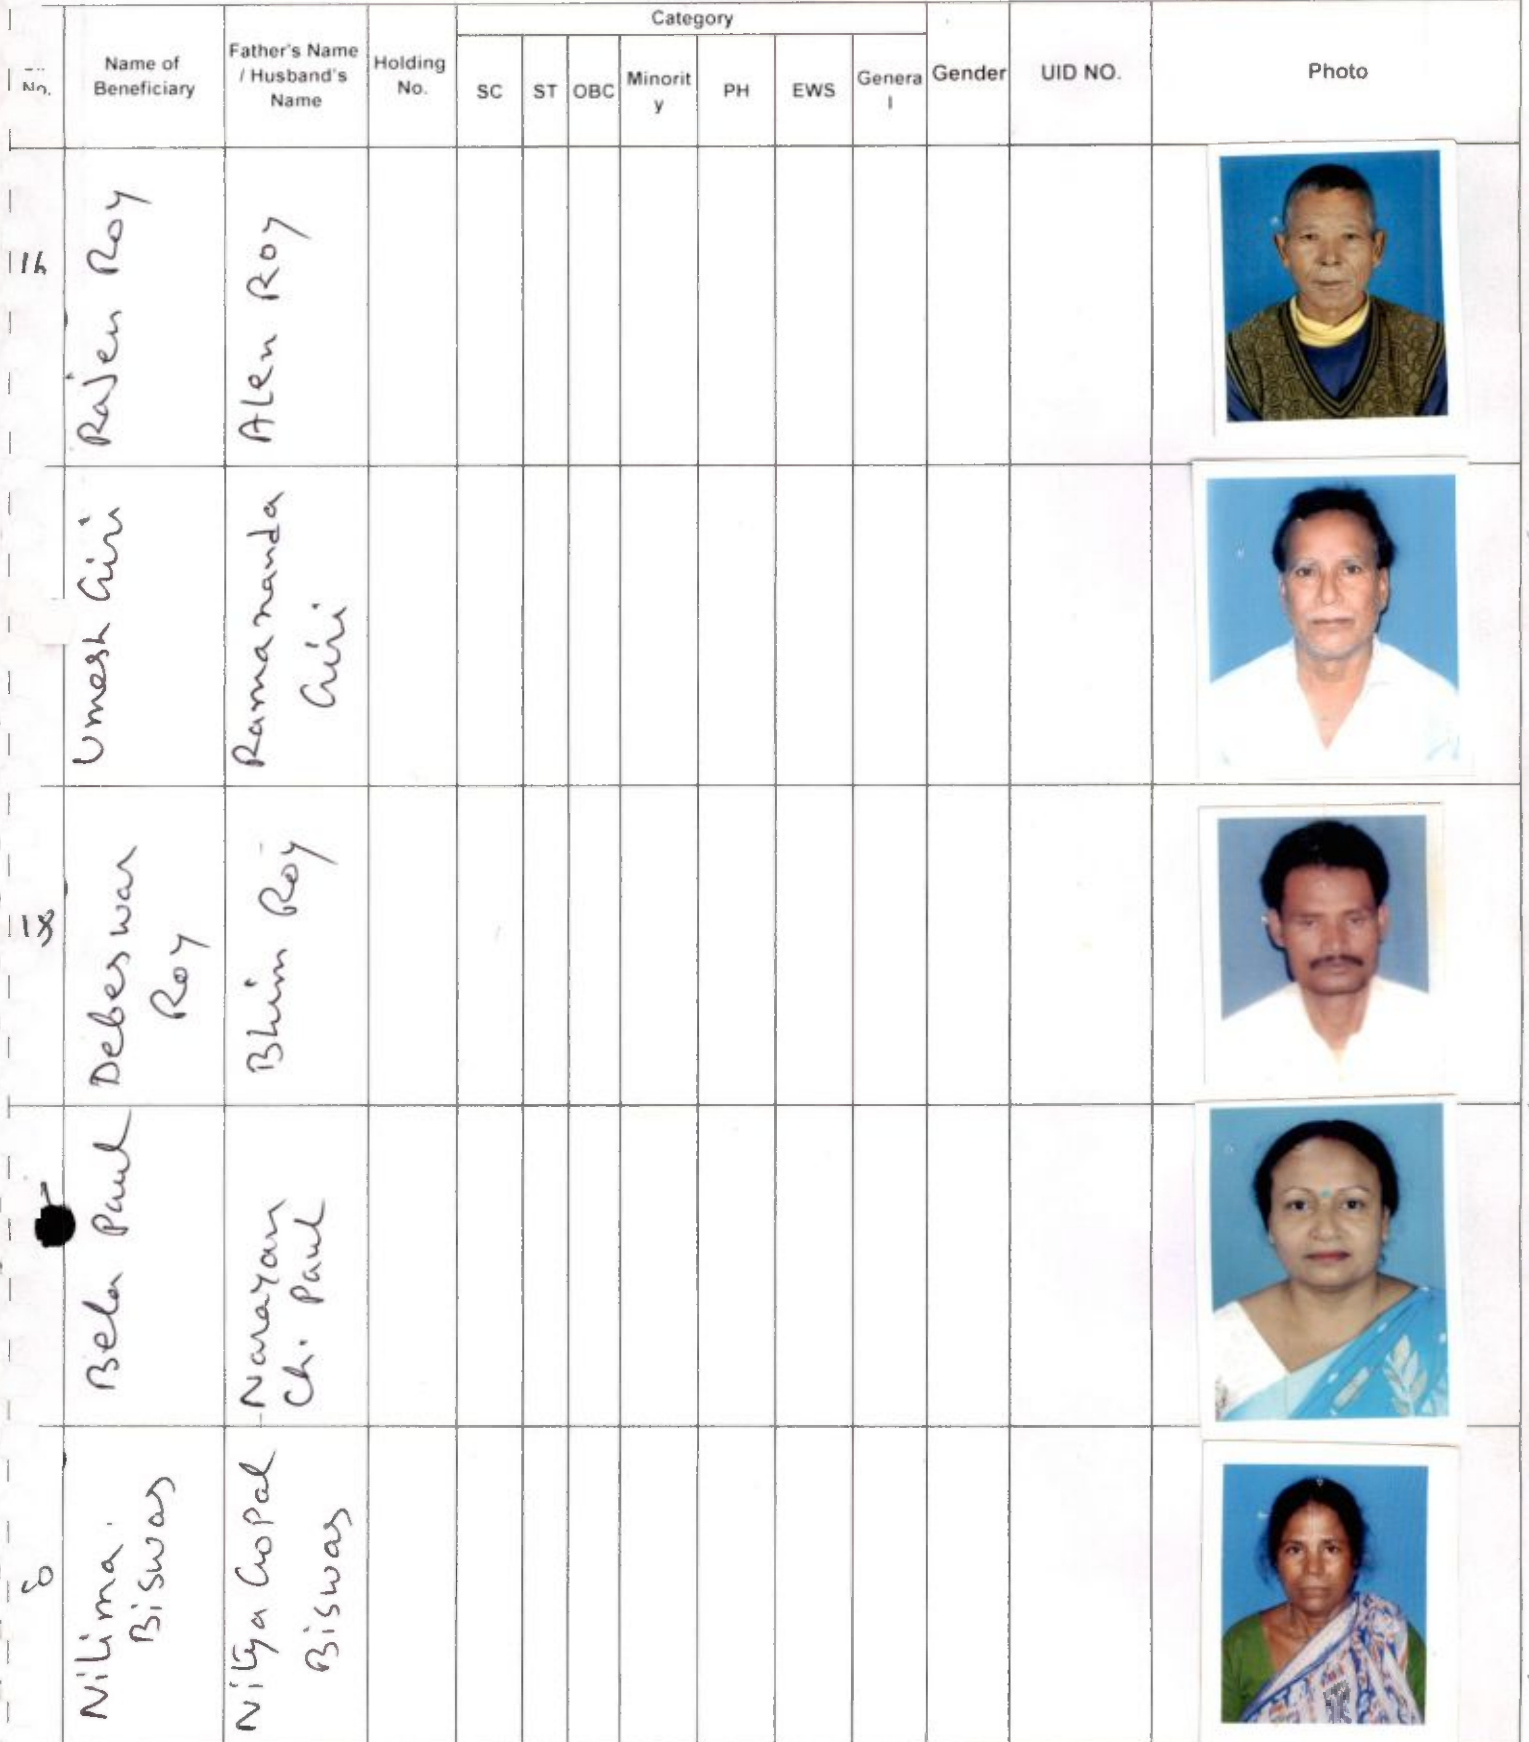 Category
No.
Name of
Beneficiary
Father's Name
/ Husband's
Name
Holding
No.
SC
ST
OBC
Minorit
y
PH
EWS
Genera
l
Gender
UID NO.
Photo
16
Rajen Roy
Alen Roy
Umesh Giri
Ramananda
Giri
18
Debeswar
Roy
Bhim Roy
Bela Paul
Narayan
Ch. Paul
Nilima
Biswas
Nitya Gopal
Biswas